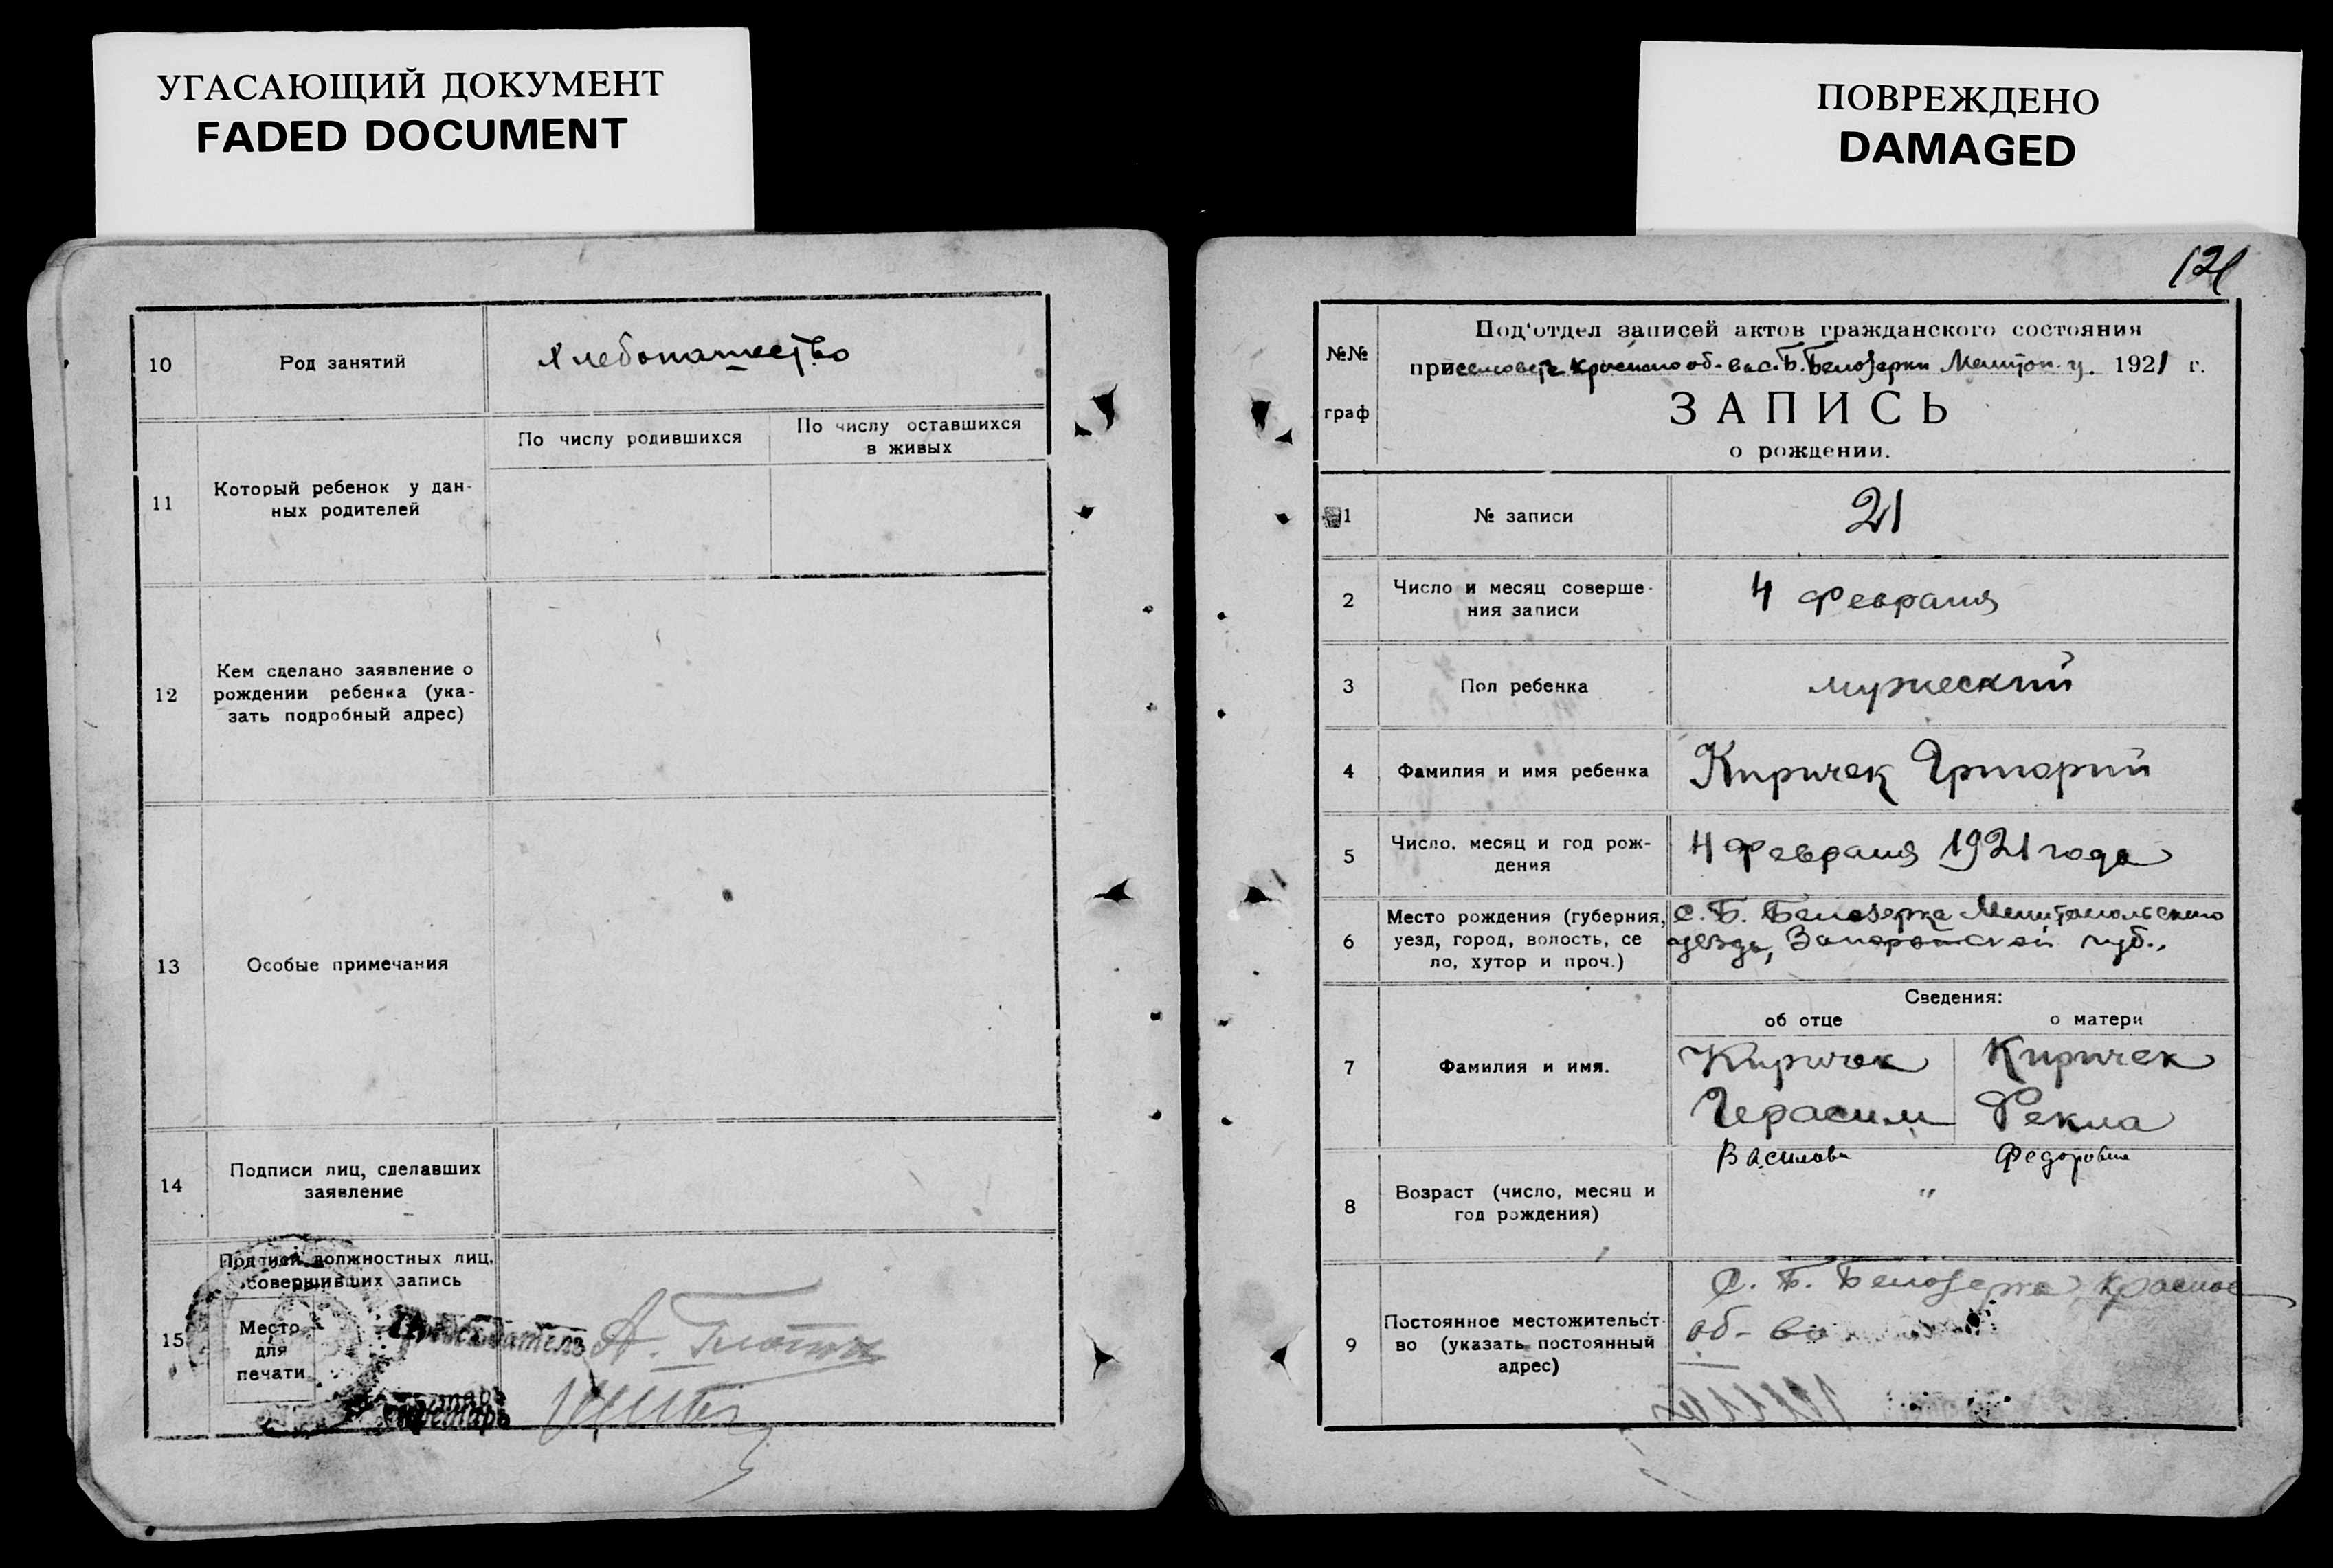 УГАСАЮЩИЙ ДОКУМЕНТ
FADED DOCUMENT
ПОВРЕЖДЕНО
DAMAGED
10
Род занятий
Хлебопашество
11
Который ребенок у дан-
ных родителей
По числу родившихся
По числу оставшихся
в живых
12
Кем сделано заявление о
рождении ребенка (ука-
зать подробный адрес)
13
Особые примечания
14
Подписи лиц, сделавших
заявление
15
Подписи должностных лиц,
совершивших запись
Место
для
печати
Председатель
Секретарь
121
№№
граф
Под'отдел записей актов гражданского состояния
при сельсовете Красного об-ва с. Б. Белозерки Мелитоп. у. 1921 г.
ЗАПИСЬ
о рождении.
1
№ записи
21
2
Число и месяц соверше-
ния записи
4 февраля
3
Пол ребенка
мужеский
4
Фамилия и имя ребенка
Киричек Григорий
5
Число, месяц и год рож-
дения
4 февраля 1921 года
6
Место рождения (губерния,
уезд, город, волость, се
ло, хутор и проч.)
с. Б. Белозерка Мелитопольского
уезда, Запорожской губ.,
Сведения:
об отце
о матери
7
Фамилия и имя.
Киричек
Герасим
Василов
Киричек
Фекла
Федоровна
8
Возраст (число, месяц и
год рождения)
"
9
Постоянное местожительст-
во (указать постоянный
адрес)
С. Б. Белозерка, Красное
об-во